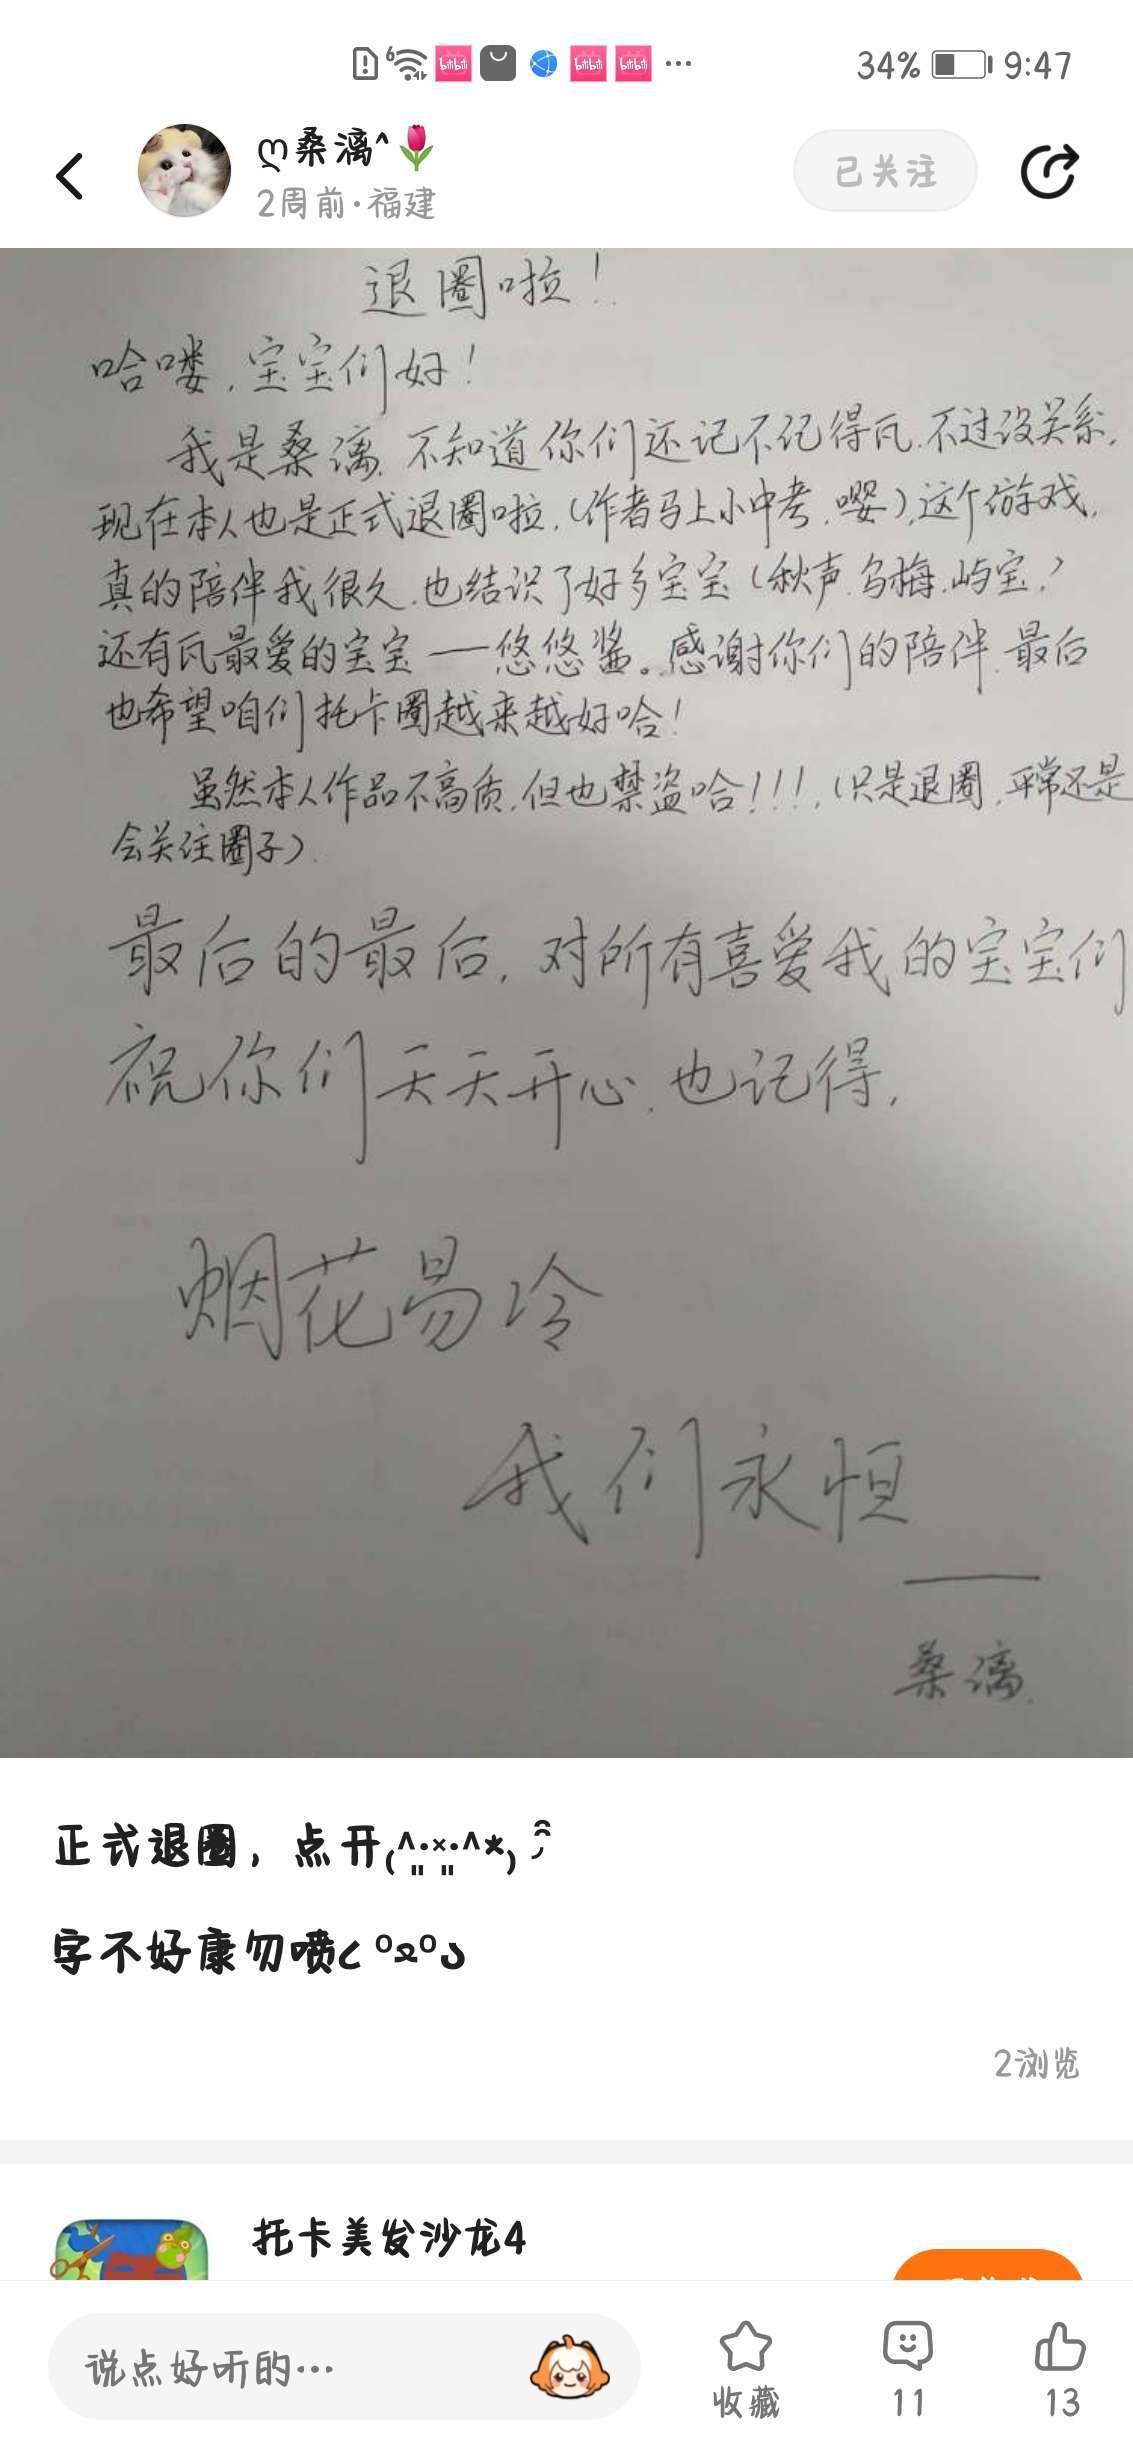 34% 9:47
ღ桑漓^🌷
2周前·福建
已关注
退圈啦！
哈喽，宝宝们好！
我是桑漓，不知道你们还记不记得瓦，不过没关系，
现在本人也是正式退圈啦，（作者马上小中考，嘤），这个游戏，
真的陪伴我很久，也结识了好多宝宝（秋声，乌梅，屿宝，）
还有瓦最爱的宝宝——悠悠酱。感谢你们的陪伴，最后
也希望咱们托卡圈越来越好哈！
虽然本人作品不高质，但也禁盗哈！！！，（只是退圈，平常还是
会关注圈子）．
最后的最后，对所有喜爱我的宝宝们
祝你们天天开心，也记得，
烟花易冷
我们永恒
——
桑漓．
正式退圈，点开
字不好康勿喷
2浏览
托卡美发沙龙4
说点好听的…
收藏
11
13